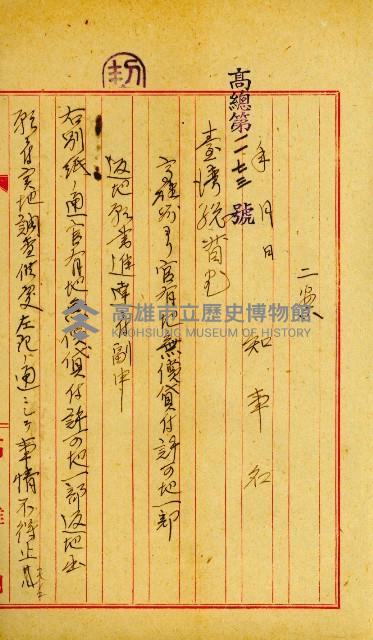 高總第二七三號
年月日
二案　知事名
臺灣總督宛
官有地無償貸付許可地一部
返地願書進達ノ件副申
右別紙ノ通官有地無償貸付許可地一部返地出
願ニ付実地調査候処左記ノ通ニシテ事情不得止
高雄市立歷史博物館
KAOHSIUNG MUSEUM OF HISTORY